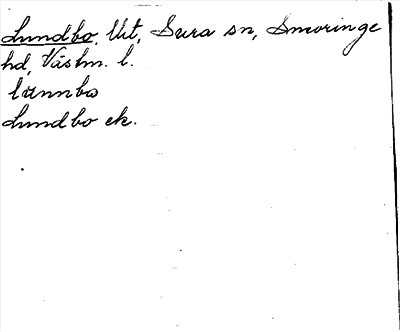 Lundbo, Utt, Sura sn, Snevringe
hd, Västm. l.
lünnbω
Lundbo ek.